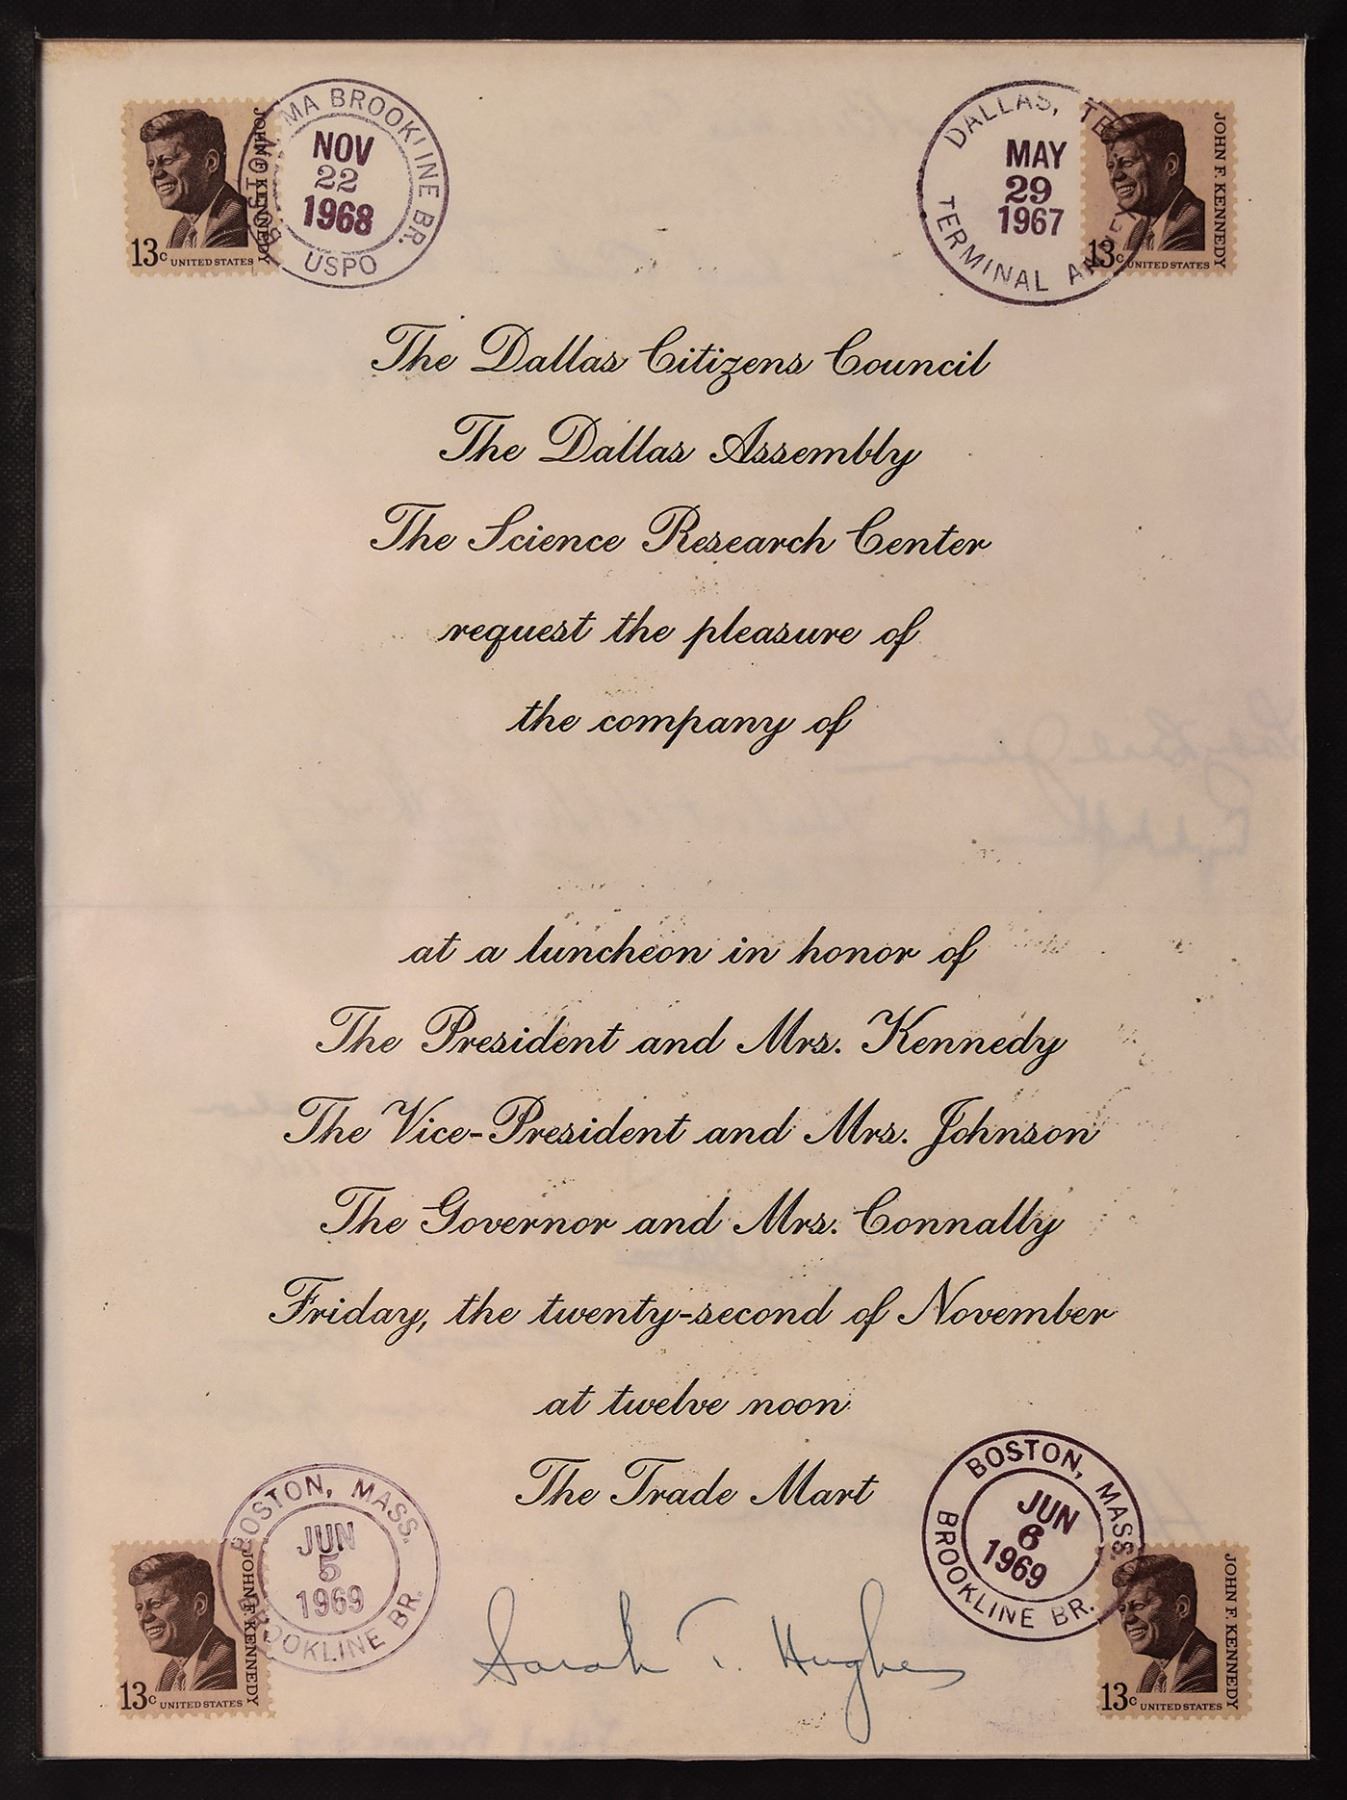 MA BROOKLINE BR.
NOV
22
1968
USPO
JOHN F. KENNEDY
13c UNITED STATES
DALLAS, TE
MAY
29
1967
TERMINAL
JOHN F. KENNEDY
13c UNITED STATES
The Dallas Citizens Council
The Dallas Assembly
The Science Research Center
request the pleasure of
the company of
at a luncheon in honor of
The President and Mrs. Kennedy
The Vice-President and Mrs. Johnson
The Governor and Mrs. Connally
Friday, the twenty-second of November
at twelve noon
The Trade Mart
BOSTON, MASS.
JUN
5
1969
BROOKLINE BR.
JOHN F. KENNEDY
13c UNITED STATES
BOSTON, MASS.
JUN
6
1969
BROOKLINE BR.
JOHN F. KENNEDY
13c UNITED STATES
Sarah T. Hughes